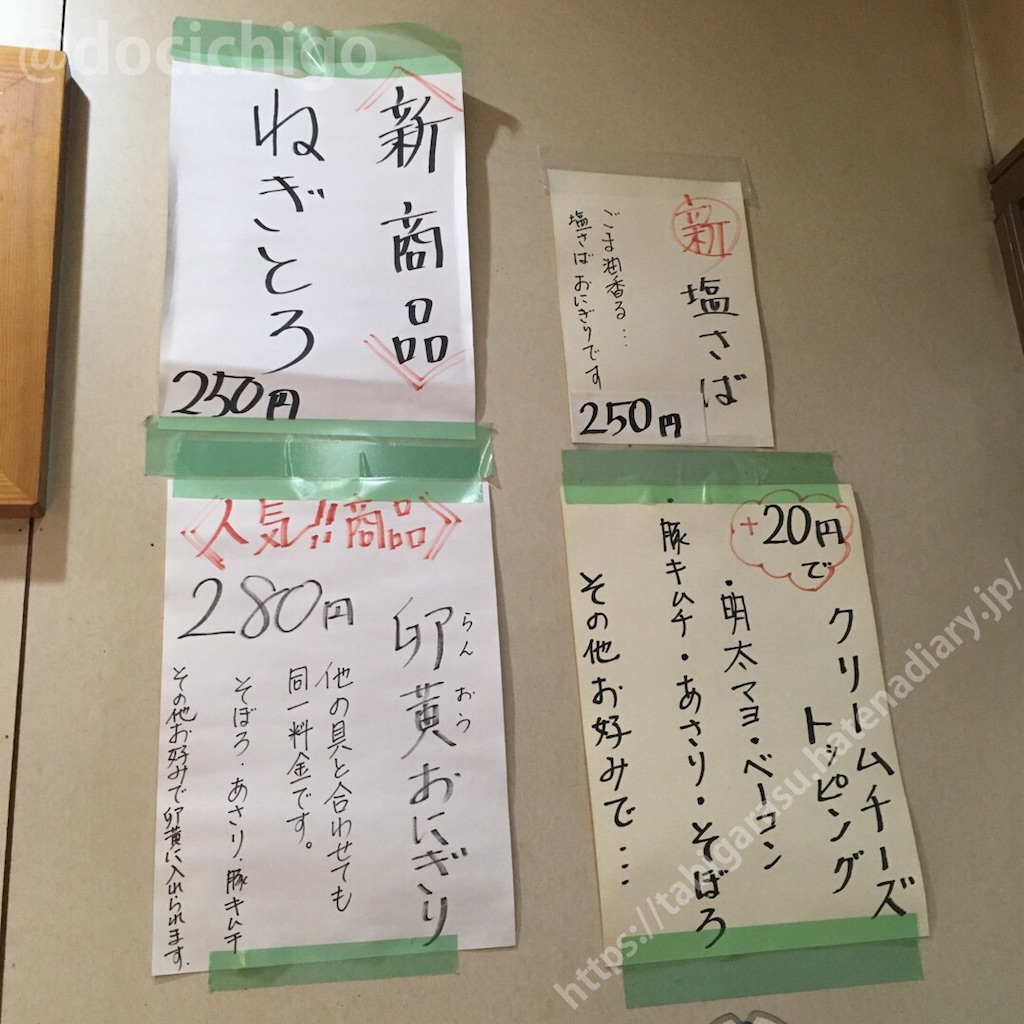 @docichigo
新商品
ねぎとろ
250円
新
塩さば
ごま油香る…
塩さばおにぎりです
250円
人気!!商品
280円
卵黄おにぎり
らんおう
他の具と合わせても
同一料金です。
そぼろ・あさり・豚キムチ
その他お好みで卵黄に入れられます。
+20円で
クリームチーズ
トッピング
・明太マヨ・ベーコン
・豚キムチ・あさり・そぼろ
その他お好みで…
https://tabigarasu.batenadiary.jp/